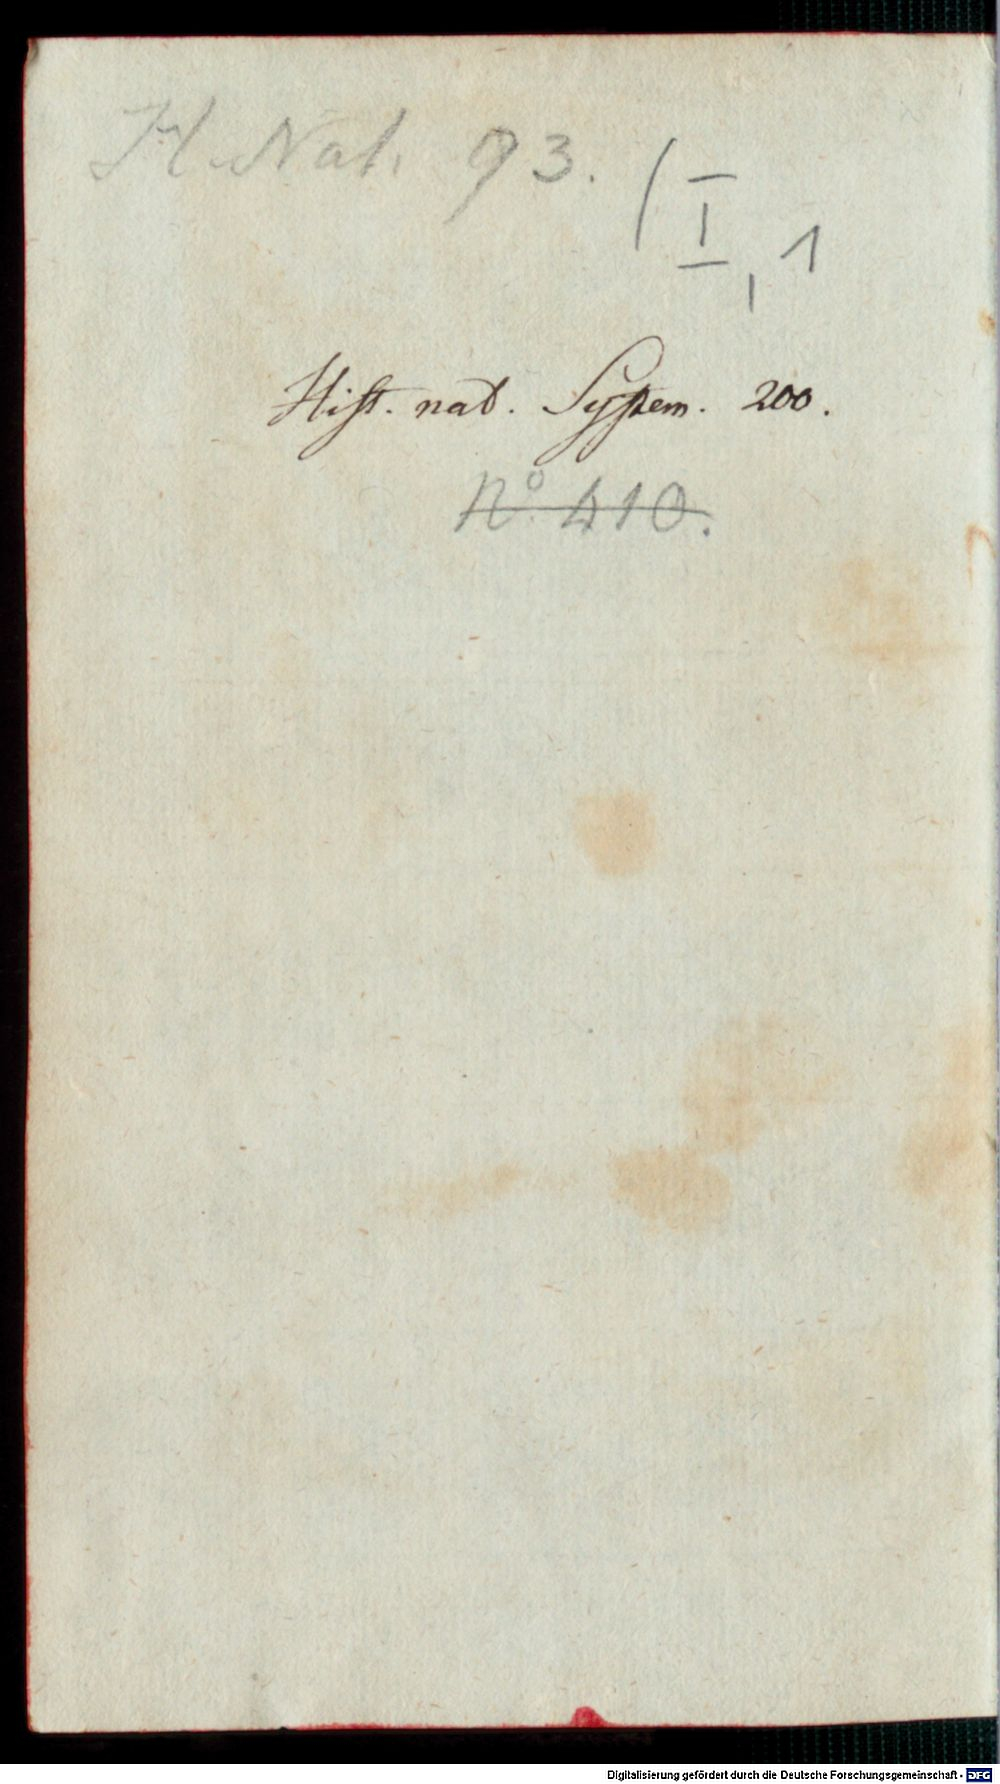 H. Nat. 93. / I, 1
Hist. nat. System. 200.
No. 410.
Digitalisierung gefördert durch die Deutsche Forschungsgemeinschaft - DFG